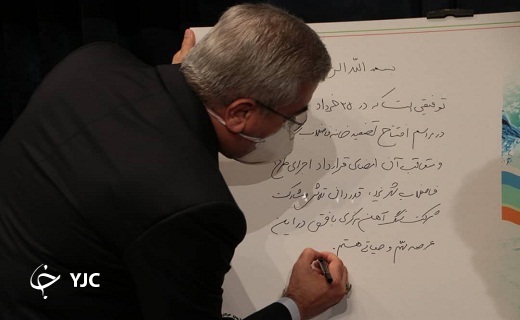 بسمه الله الر
توفیقی است که در ۲۵ خرداد
در مراسم افتتاح تصفیه خانه فاضلاب
و متعاقب آن امضای قرارداد اجرای طرح
فاضلاب شهر یزد، قدردان تلاش و مشارکت
شرکت سنگ آهن مرکزی بافق در این
عرصه مهم و حیاتی هستم.
YJC